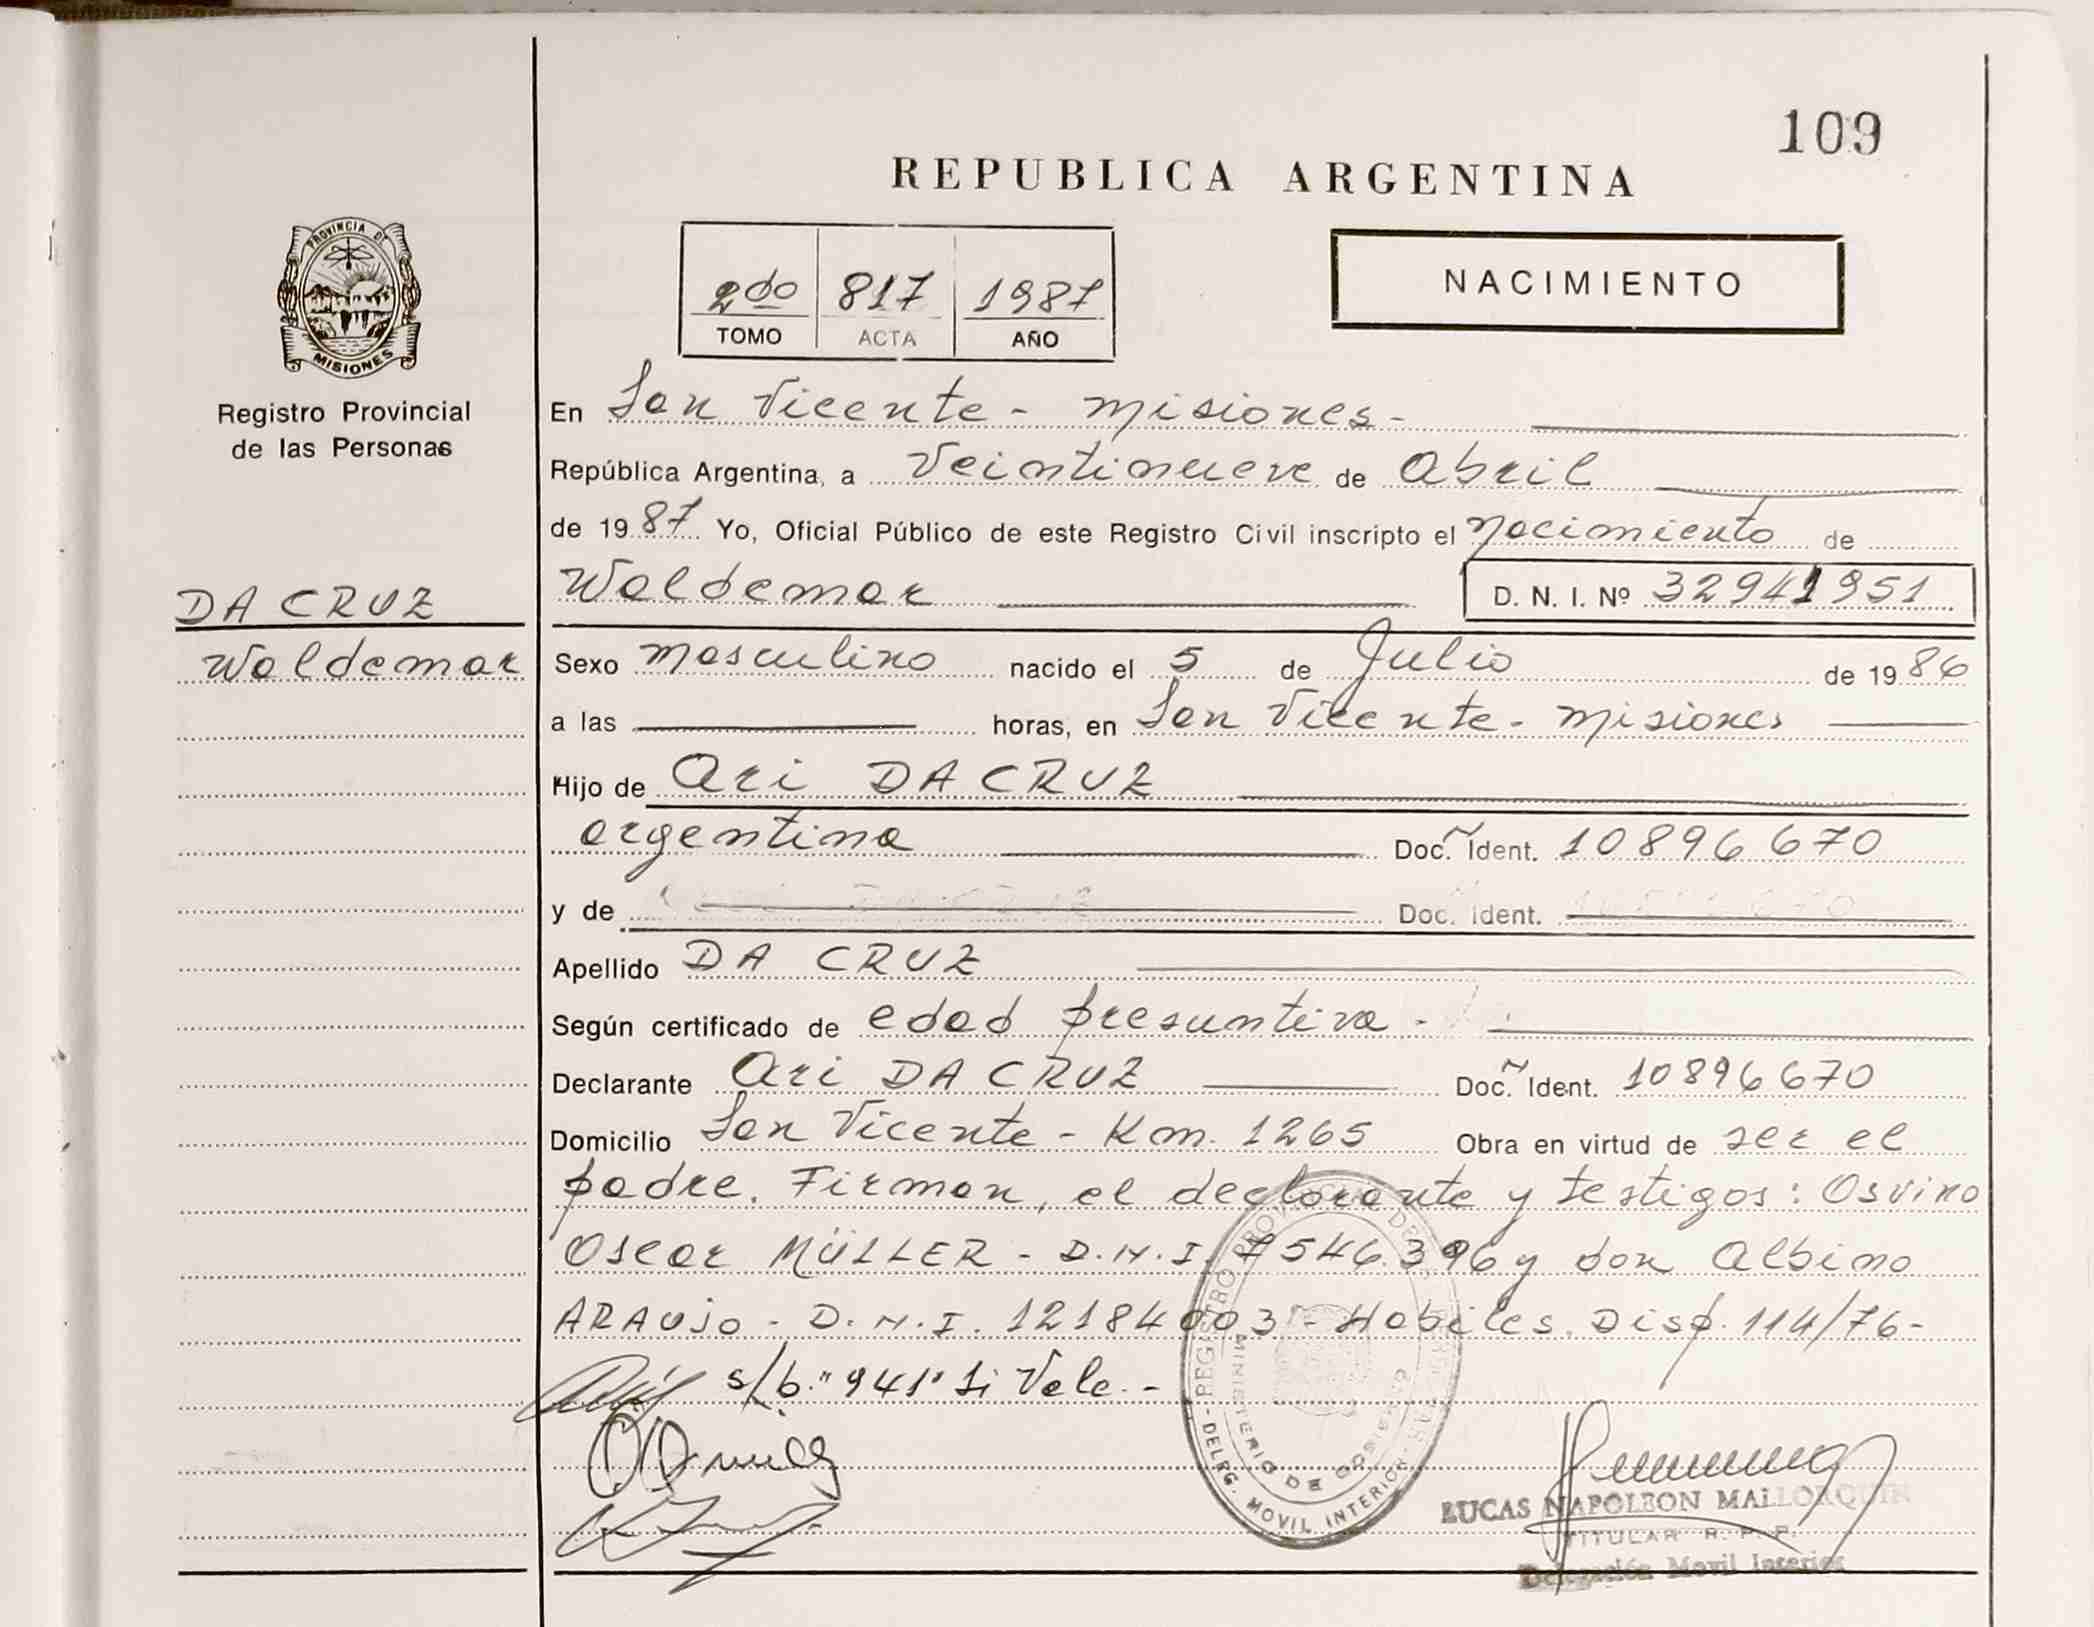 109
REPUBLICA ARGENTINA
PROVINCIA DE
MISIONES
Registro Provincial
de las Personas
2do 817 1987
TOMO ACTA AÑO
NACIMIENTO
En San Vicente - Misiones -
República Argentina, a Veintinueve de Abril
de 19 87 Yo, Oficial Público de este Registro Civil inscripto el Nacimiento de
Waldemar D. N. I. Nº 32941951
DA CRUZ
Waldemar
Sexo Masculino nacido el 5 de Julio de 19 86
a las horas, en San Vicente - Misiones
Hijo de Ari DA CRUZ
argentina Doc. Ident. 10896670
y de Doc. Ident.
Apellido DA CRUZ
Según certificado de edad presuntiva -
Declarante Ari DA CRUZ Doc. Ident. 10896670
Domicilio San Vicente - Km. 1265 Obra en virtud de ser el
padre. Firman, el declarante y testigos: Osvino
Oscar MÜLLER - D.N.I. 7546.396 y don Albino
ARAUJO - D.N.I. 12184003 - Hábiles. Disp. 114/76 -
s/b. "941" Si Vale. -
REGISTRO PROVINCIAL DE
MINISTERIO DE GOBIERNO
- DELEG. MOVIL INTERIOR -
LUCAS NAPOLEON MALLORQUIN
TITULAR R. P. P.
Delegación Movil Interior